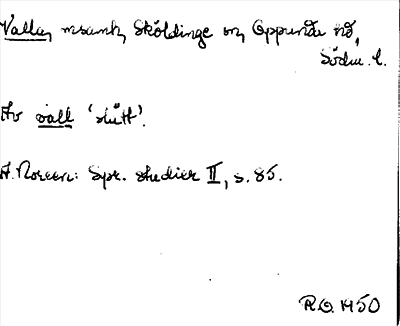 Valla, msamh, Sköldinge sn, Oppunda hd,
Södm. l.
Av vall 'slätt'.
A. Noreen: Spr. studier II, s. 85.
R.O. 1950